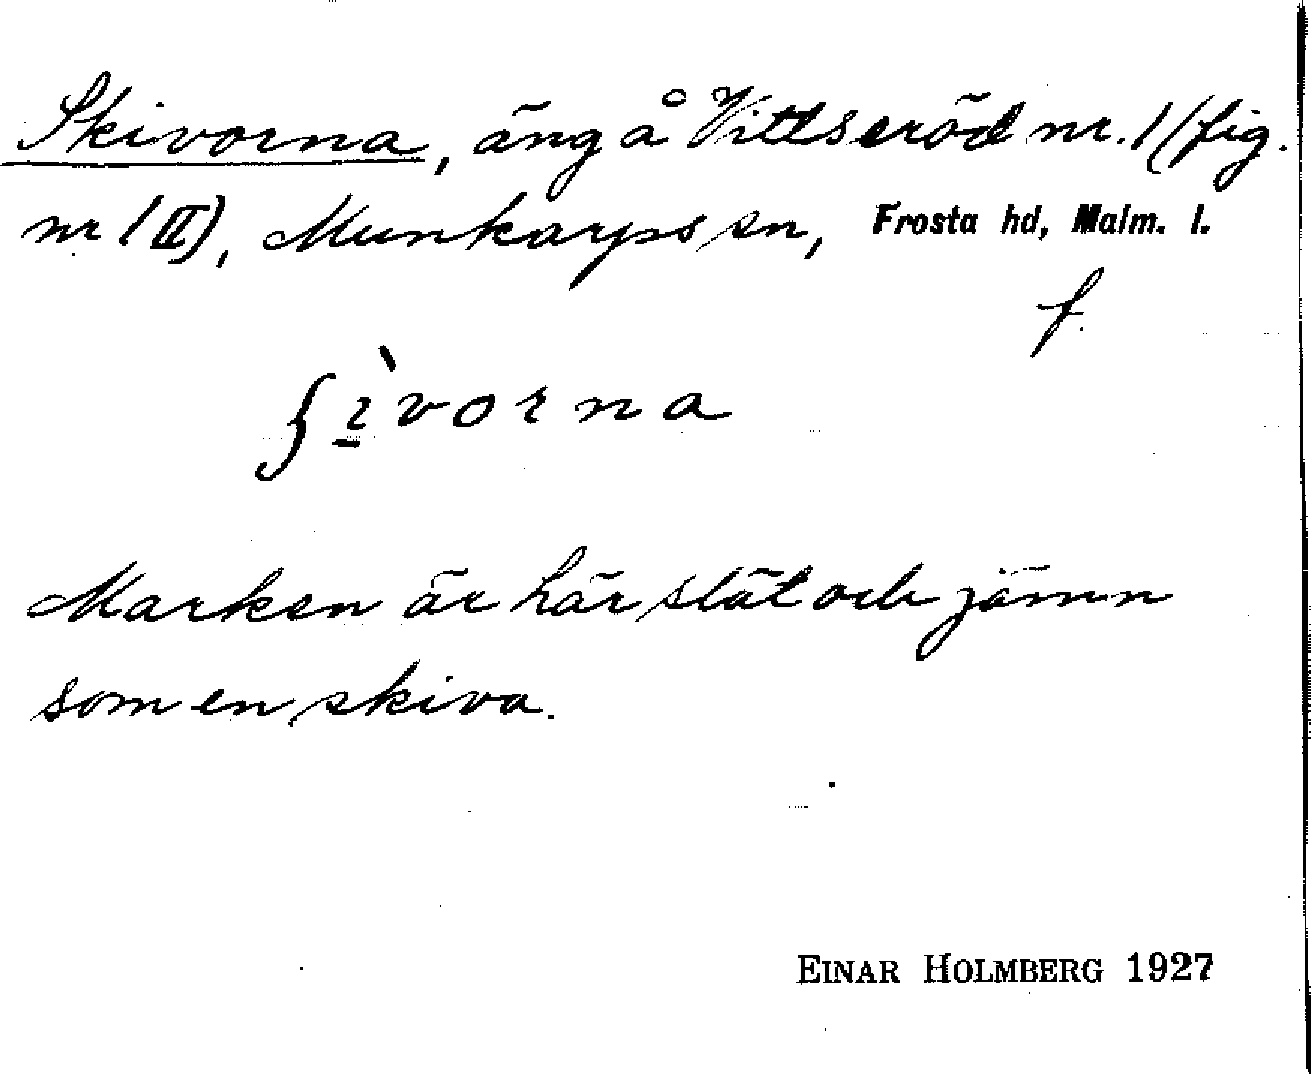 Skivorna, äng å Vittseröd nr. 1 (fig.
nr 1 II), Munkarps sn, Frosta hd, Malm. l.
f.
ʃı̠̀vorna
Marken är här slät och jämn
som en skiva.
EINAR HOLMBERG 1927